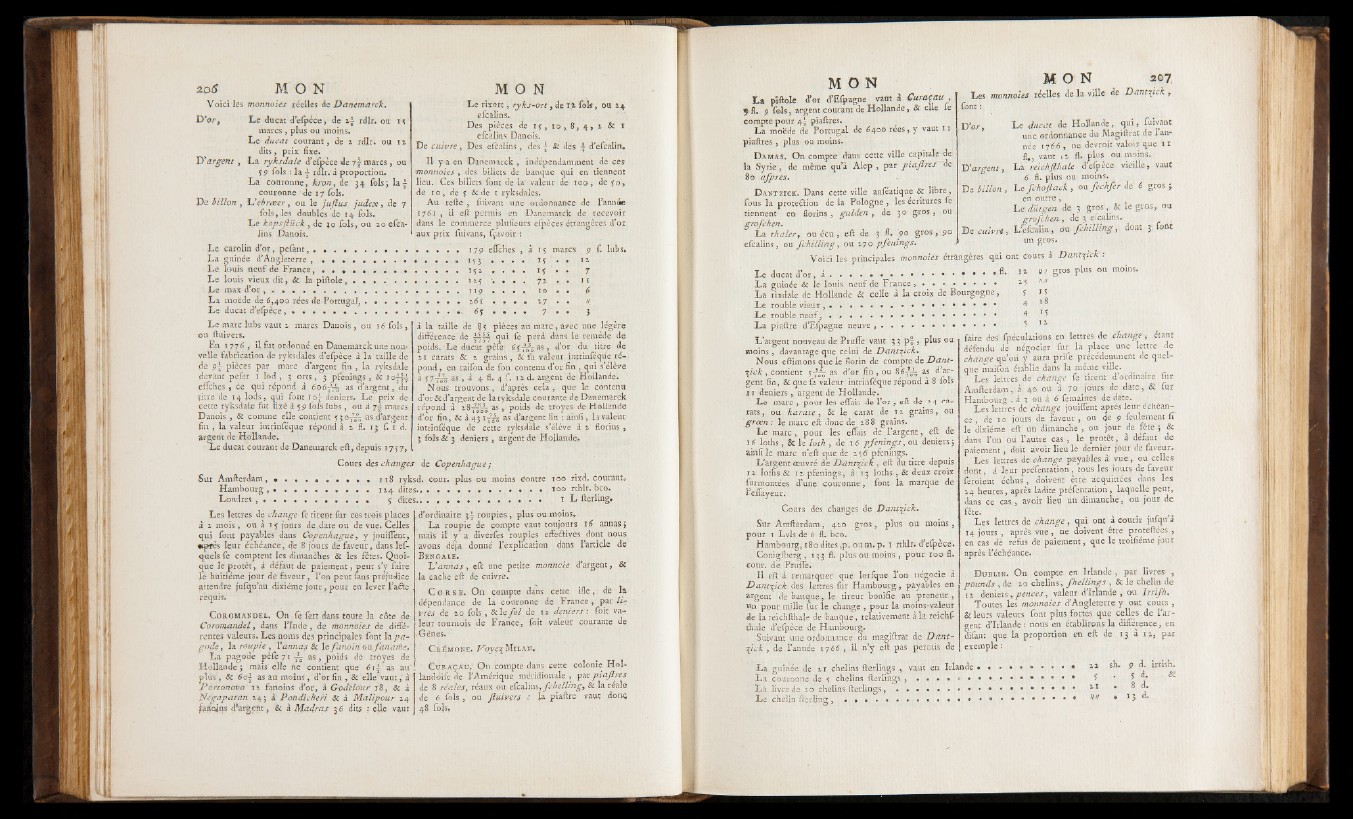 206 MON MON
Voici les monnoies réelles de Danemarck.
D'or, Le ducat d'espéce, de 2⅜ rdlr. ou 15
marcs, plus ou moins.
Le ducat courant, de 2 rdlr. ou 12
dits, prix fixe.
D'argent, La ryksdale d'espéce de 7⅜ marcs, ou
59 sols : la ½ rdlr. à proportion.
La couronne, kron, de 34 sols; la ½
couronne de 17 sols.
De billon, L'ebræer, ou le justus judex, de 7
sols, les doubles de 14 sols.
Le kopstück, de 10 sols, ou 20 esca-
lins Danois.
Le rixort, ryks-ort, de 12 sols, ou 24
escalins.
Des pièces de 15, 10, 8, 4, 2 & 1
escalins Danois.
De cuivre, Des escalins, des ½ & des ¼ d'escalin.
Il y a en Danemarck, indépendamment de ces
monnoies, des billets de banque qui en tiennent
lieu. Ces billets sont de la valeur de 100, de 50,
de 10, de 5 & de 1 ryksdales.
Au reste, suivant une ordonnance de l'année
1761, il est permis en Danemarck de recevoir
dans le commerce plusieurs espèces étrangères d'or
aux prix suivans, sçavoir :
Le carolin d'or, pesant, . . . 179 essches, à 15 marcs 9 s. lubs.
La guinée d'Angleterre, . . . 153 . . . . 15 . . 12
Le louis neuf de France, . . . 152 . . . . 15 . . 7
Le louis vieux dit, & la pistole, . . . 125 . . . . 72 . . 11
Le max d'or, . . . 119 . . . . 10 . . 6
La moède de 6,400 rées de Portugal, . . . 261 . . . . 27 . . "
Le ducat d'espèce, . . . 65 . . . . 7 . . 3
Le marc lubs vaut 2 marcs Danois, ou 16 sols,
ou stuivers.
En 1776, il fut ordonné en Danemarck une nou-
velle fabrication de ryksdales d'espèce à la taille de
de 9¼ pièces par marc d'argent fin, la ryksdale
devant peser 1 lod, 3 orts, 3 pfenings, &
essches, ce qui répond à as d'argent, du
titre de 14 lods, qui font 10½ deniers. Le prix de
cette ryksdale fut fixé à 59 sols lubs, ou à 7⅜ marcs
Danois, & comme elle contient as d'argent
fin, la valeur intrinsèque répond à 2 fl. 13 s. 2 d.
argent de Hollande.
Le ducat courant de Danemarck est, depuis 1757,
à la taille de pièces au marc, avec une légère
différence de qui se perd dans le remède de
poids. Le ducat pèse as, d'or du titre de
21 carats & 2 grains, & sa valeur intrinsèque ré-
pond, en raison de son contenu d'or fin, qui s'élève
à as, à 4 fl. 4 s. 12 d. argent de Hollande.
Nous trouvons, d'après cela, que le contenu
d'or & d'argent de la ryksdale courante de Danemarck
répond à as, poids de troyes de Hollande
d'or fin, & à as d'argent fin : ainsi, la valeur
intrinsèque de cette ryksdale s'élève à 2 florins,
3 sols & 3 deniers, argent de Hollande.
Cours des changes de Copenhague;
Sur Amsterdam, . . . 118 ryksd. cour. plus ou moins contre 100 rixd. courant.
Hambourg, . . . 124 dites. . . . 100 rchlt. bco.
Londres, . . . 5 dites. . . . 1 L sterling.
Les lettres de change se tirent sur ces trois places
à 2 mois, ou à 15 jours de date ou de vue. Celles
qui sont payables dans Copenhague, y jouissent,
après leur échéance, de 8 jours de faveur, dans les-
quels se comptent les dimanches & les fêtes. Quoi-
que le protêt, à défaut de paiement, peut s'y faire
le huitième jour de faveur, l'on peut sans préjudice
attendre jusqu'au dixième jour, pour en lever l'acte
requis.
COROMANDEL. On se sert dans toute la côte de
Coromandel, dans l'Inde, de monnoies de diffé-
rentes valeurs. Les noms des principales sont la pa-
gode, la roupie, l'annas & le fanoin ou fanams.
La pagode pèse as, poids de troyes de
Hollande; mais elle ne contient que 61½ as au
plus, & 60½ as au moins, d'or fin, & elle vaut, à
Portonovo 12 fanoins d'or, à Godelour 18, & à
Negapatan 24; à Pondicheri & à Malipour 24
fanoins d'argent, & à Madras 36 dits : elle vaut
d'ordinaire 3½ roupies, plus ou moins.
La roupie de compte vaut toujours 16 annas;
mais il y a diverses roupies effectives dont nous
avons déja donné l'explication dans l'article de
BENGALE.
L'annas, est une petite monnoie d'argent, &
la cache est de cuivre.
CORSE. On compte dans cette isle, de la
dépendance de la couronne de France, par li-
vres de 20 sols, & le sol de 12 deniers : soit va-
leur tournois de France, soit valeur courante de
Gènes.
CRÉMONE. Voyez MILAN.
CURAÇAU. On compte dans cette colonie Hol-
landoise de l'Amérique méridionale, par piastres
de 8 réales, réaux ou escalins, schelling, & la réale
de 6 sols, ou stuivers : la piastre vaut donc
48 sols.
MON MON 207
La pistole d'or d'Espagne vaut à Curaçau,
9 fl. 9 sols, argent courant de Hollande, & elle se
compte pour 4½ piastres.
La moëde de Portugal de 6400 rées, y vaut 11
piastres, plus ou moins.
DAMAS. On compte dans cette ville capitale de
la Syrie, de même qu'à Alep, par piastres de
80 aspres.
DANTZICK. Dans cette ville anséatique & libre,
sous la protection de la Pologne, les écritures se
tiennent en florins, gulden, de 30 gros, ou
groschen.
La thaler, ou écu, est de 3 fl. 90 gros, 90
escalins, ou schilling, ou 270 pfenings.
Les monnoies réelles de la ville de Dantzick,
sont :
D'or, Le ducat de Hollande, qui, suivant
une ordonnance du Magistrat de l'an-
née 1766, ne devroit valoir que 11
fl., vaut 12 fl. plus ou moins.
D'argent, La reichsthale d'espéce vieille, vaut
6 fl. plus ou moins.
De billon, Le schostack, ou sechser de 6 gros;
en outre,
Le dütgen de 3 gros, & le gros, ou
groschen, de 3 escalins.
De cuivre, L'escalin, ou schilling, dont 3 font
un gros.
Voici les principales monnoies étrangères qui ont cours à Dantzick :
Le ducat d'or, à . . . fl. 12 " gros plus ou moins.
La guinée & le louis neuf de France, . . . 25 "
La rixdale de Hollande & celle à la croix de Bourgogne, 5 15
Le rouble vieux, . . . 4 18
Le rouble neuf, . . . 4 15
La piastre d'Espagne neuve, . . . 5 12
L'argent nouveau de Prusse vaut 33 p%, plus ou
moins, davantage que celui de Dantzick.
Nous estimons que le florin de compte de Dant-
zick, contient as d'or fin, ou as d'ar-
gent fin, & que sa valeur intrinsèque répond à 8 sols
11 deniers, argent de Hollande.
Le marc, pour les essais de l'or, est de 24 ca-
rats, ou karate, & le carat de 12 grains, ou
græn : le marc est donc de 288 grains.
Le marc, pour les essais de l'argent, est de
16 loths, & le loth, de 16 pfenings, ou deniers;
ainsi le marc n'est que de 256 pfenings.
L'argent œuvré de Dantzick, est du titre depuis
12 loths & 12 pfenings, à 13 loths, & deux croix
surmontées d'une couronne, sont la marque de
l'essayeur.
Cours des changes de Dantzick.
Sur Amsterdam, 420 gros, plus ou moins,
pour 1 Lvls de 6 fl. bco.
Hambourg, 180 dites, p. ou m. p. 1 rthlr. d'espèce.
Conigsberg, 133 fl. plus ou moins, pour 100 fl.
cour. de Prusse.
Il est à remarquer que lorsque l'on négocie à
Dantzick des lettres sur Hambourg, payables en
argent de banque, le tireur bonifie au preneur,
un pour mille sur le change, pour la moins-valeur
de la reichsthale de banque, relativement à la reichs-
thale d'espèce de Hambourg.
Suivant une ordonnance du magistrat de Dant-
zick, de l'année 1766, il n'y est pas permis de
faire des spéculations en lettres de change, étant
défendu de négocier sur la place une lettre de
change qu'on y aura prise précédemment de quel-
que maison établie dans la même ville.
Les lettres de change se tirent d'ordinaire sur
Amsterdam, à 40 ou à 70 jours de date, & sur
Hambourg, à 3 ou à 6 semaines de date.
Les lettres de change jouissent après leur échéan-
ce, de 10 jours de faveur, ou de 9 seulement si
le dixième est un dimanche, ou jour de fête; &
dans l'on ou l'autre cas, le protêt, à défaut de
paiement, doit avoir lieu le dernier jour de faveur.
Les lettres de change payables à vue, ou celles
dont, à leur présentation, tous les jours de faveur
seroient échus, doivent être acquittées dans les
24 heures, après ladite présentation, laquelle peut,
dans ce cas, avoir lieu un dimanche, ou jour de
fête.
Les lettres de change, qui ont à courir jusqu'à
14 jours, après vue, ne doivent être protestées,
en cas de refus de paiement, que le troisième jour
après l'échéance.
DUBLIN. On compte en Irlande, par livres,
pounds, de 20 chelins, shellings, & le chelin de
12 deniers, pences, valeur d'Irlande, ou Irrish.
Toutes les monnoies d'Angleterre y ont cours,
& leurs valeurs sont plus fortes que celles de l'ar-
gent d'Irlande : nous en établirons la différence, en
disant que la proportion en est de 13 à 12, par
exemple :
La guinée de 21 chelins sterlings, vaut en Irlande . . . 22 sh. 9 d. irrish.
La couronne de 5 chelins sterlings, . . . 5 . 5 d. &
La livre de 20 chelins sterlings, . . . 21 . 8 d.
Le chelin sterling, . . . " . 13 d.